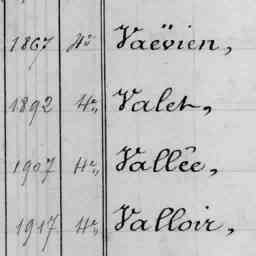 1867 Hᵉ Vaëvien,
1892 Hᵉ„ Valet,
1907 Hᵉ„ Vallée,
1917 Hᵉ„ Valloir,